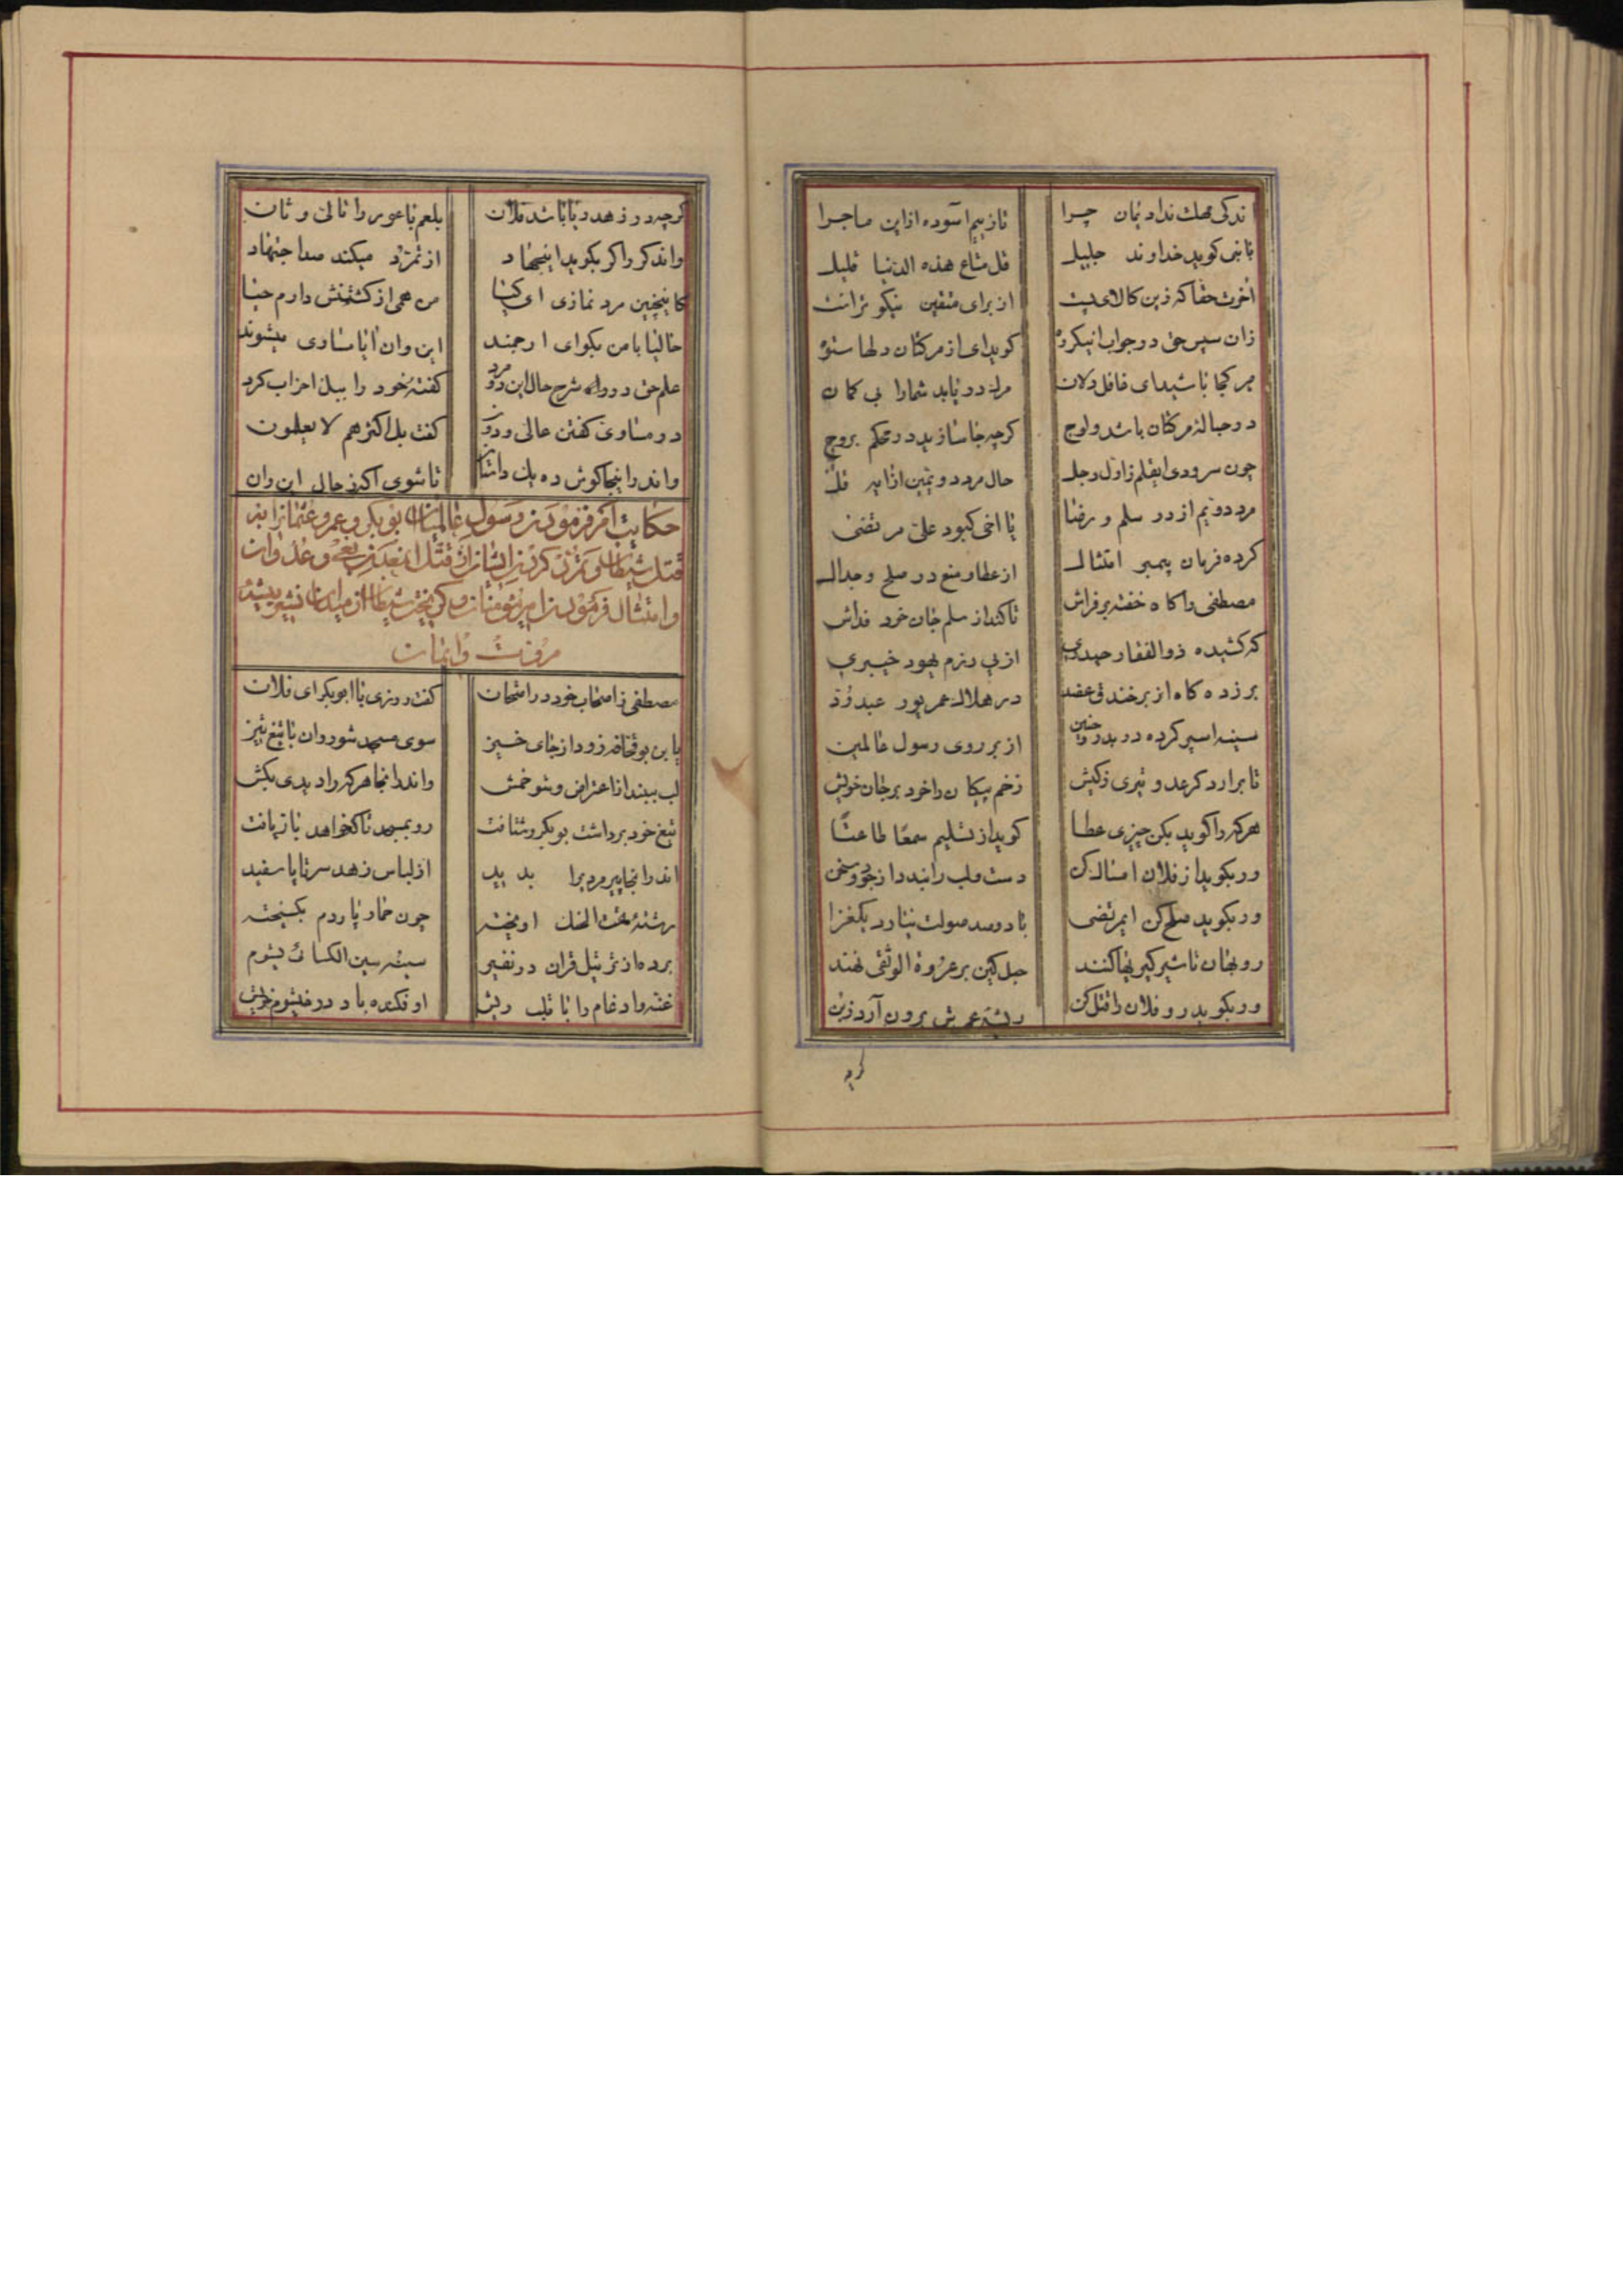 اندکی مهلت نداد نمان چرا تا زییم اسوده ازاین ماجرا
با نبی کوید خداوند جلیل قل متاع هذه الدنیا قلیل
اخرت حقا که زین کالای پست از برای متقین نیکو تراست
زان سپس حق در جواب انیکروه کوید ای از مرکتان دلها ستوه
هر کجا باشید ای غافل دلان مرک دریابد شما را بی کمان
در حباله مرکتان باشد ولوج کرچه جا سازید در محکم بروج
چون سرودی ایقلم زاول وجل حال مرد دویمین
مرد دویم از در سلم و رضا یا اخی کبود علی مرتضی
کرده فرمان پیمبر امتثال از عطا و منع در صلح و جدال
مصطفی را کاه خفته بر فراش تا کند از سلم جان خود فداش
که کشیده ذوالفقار حیدری از پی رزم یهود خیبری
بر زده کاه از بر خندق عقد در هلاک عمر پور عبدود
سینه اسپر کرده در بدر و حنین از بر روی رسول عالمین
تا برارد کر عدو تیری زکیش زخم پیکان را خرد بر جان خویش
هرکه را کوید بکن چیزی عطا کوید از تسلیم سمعا طاعتا
ور بکوید از فلان امساک کن دست و لب را بندد از جود و سخن
ور بکوید صلح کن ایمرتضی با دوصد صولت نیارد یکغزا
روبهان تا شیر کیریها کنند حبل کین بر عروة الوثقی نهند
ور بکوید رو فلان را قتل کن ریشه عمرش برون آرد زبن
کرچه
کرچه در زهد و ریا باشد فلان بلعم باعور را تالی و ثان
واندکر را کر بکوید اینجهاد از تمرد میکند صد اجتهاد
کاینچنین مرد نمازی ای کیا من همی از کشتنش دارم حیا
حالیا با من بکو ای ارجمند این وان آیا مساوی میشوند
علم حق در شرح حال این دو مرد کفته خود را ببل اضراب کرد
در مساوی کفتن عالی و دون کفت بل اکثرهم لا یعلمون
واندر اینجا کوش ده بل داستان تا شوی اکه ز حال این وان
حکایت امر فرمودن رسول عالمیان بوبکر و عمر و عثمانرا به
قتل شیطان و تمرد کردن ایشان از قتل از بغی و عدوان
و امتثال فرمودن امیر مومنان و کریختن شیطان از میدان بیشه
مروت و ایمان
مصطفی زاصحاب خود در امتحان کفت روزی با ابوبکر ای فلان
یا بن بوقحافه زود از جای خیز سوی مسجد شو روان با تیغ تیز
لب ببند از اعتراض و شو خمش واندرانجا هرکه را دیدی بکش
تیغ خود برداشت بوبکر و شتافت رو بمسجد تا کخواهد باز یافت
اندر انجا پیرمردی را بدید از لباس زهد سر تا پا سفید
رشته تحت الحنک اویخته چون حمار پاردم بکسیخته
برده از ترتیل قران در نفیر سینه سین الکسائی
غنه و ادغام را با قلب ریش او فکنده باد در خیشوم خویش